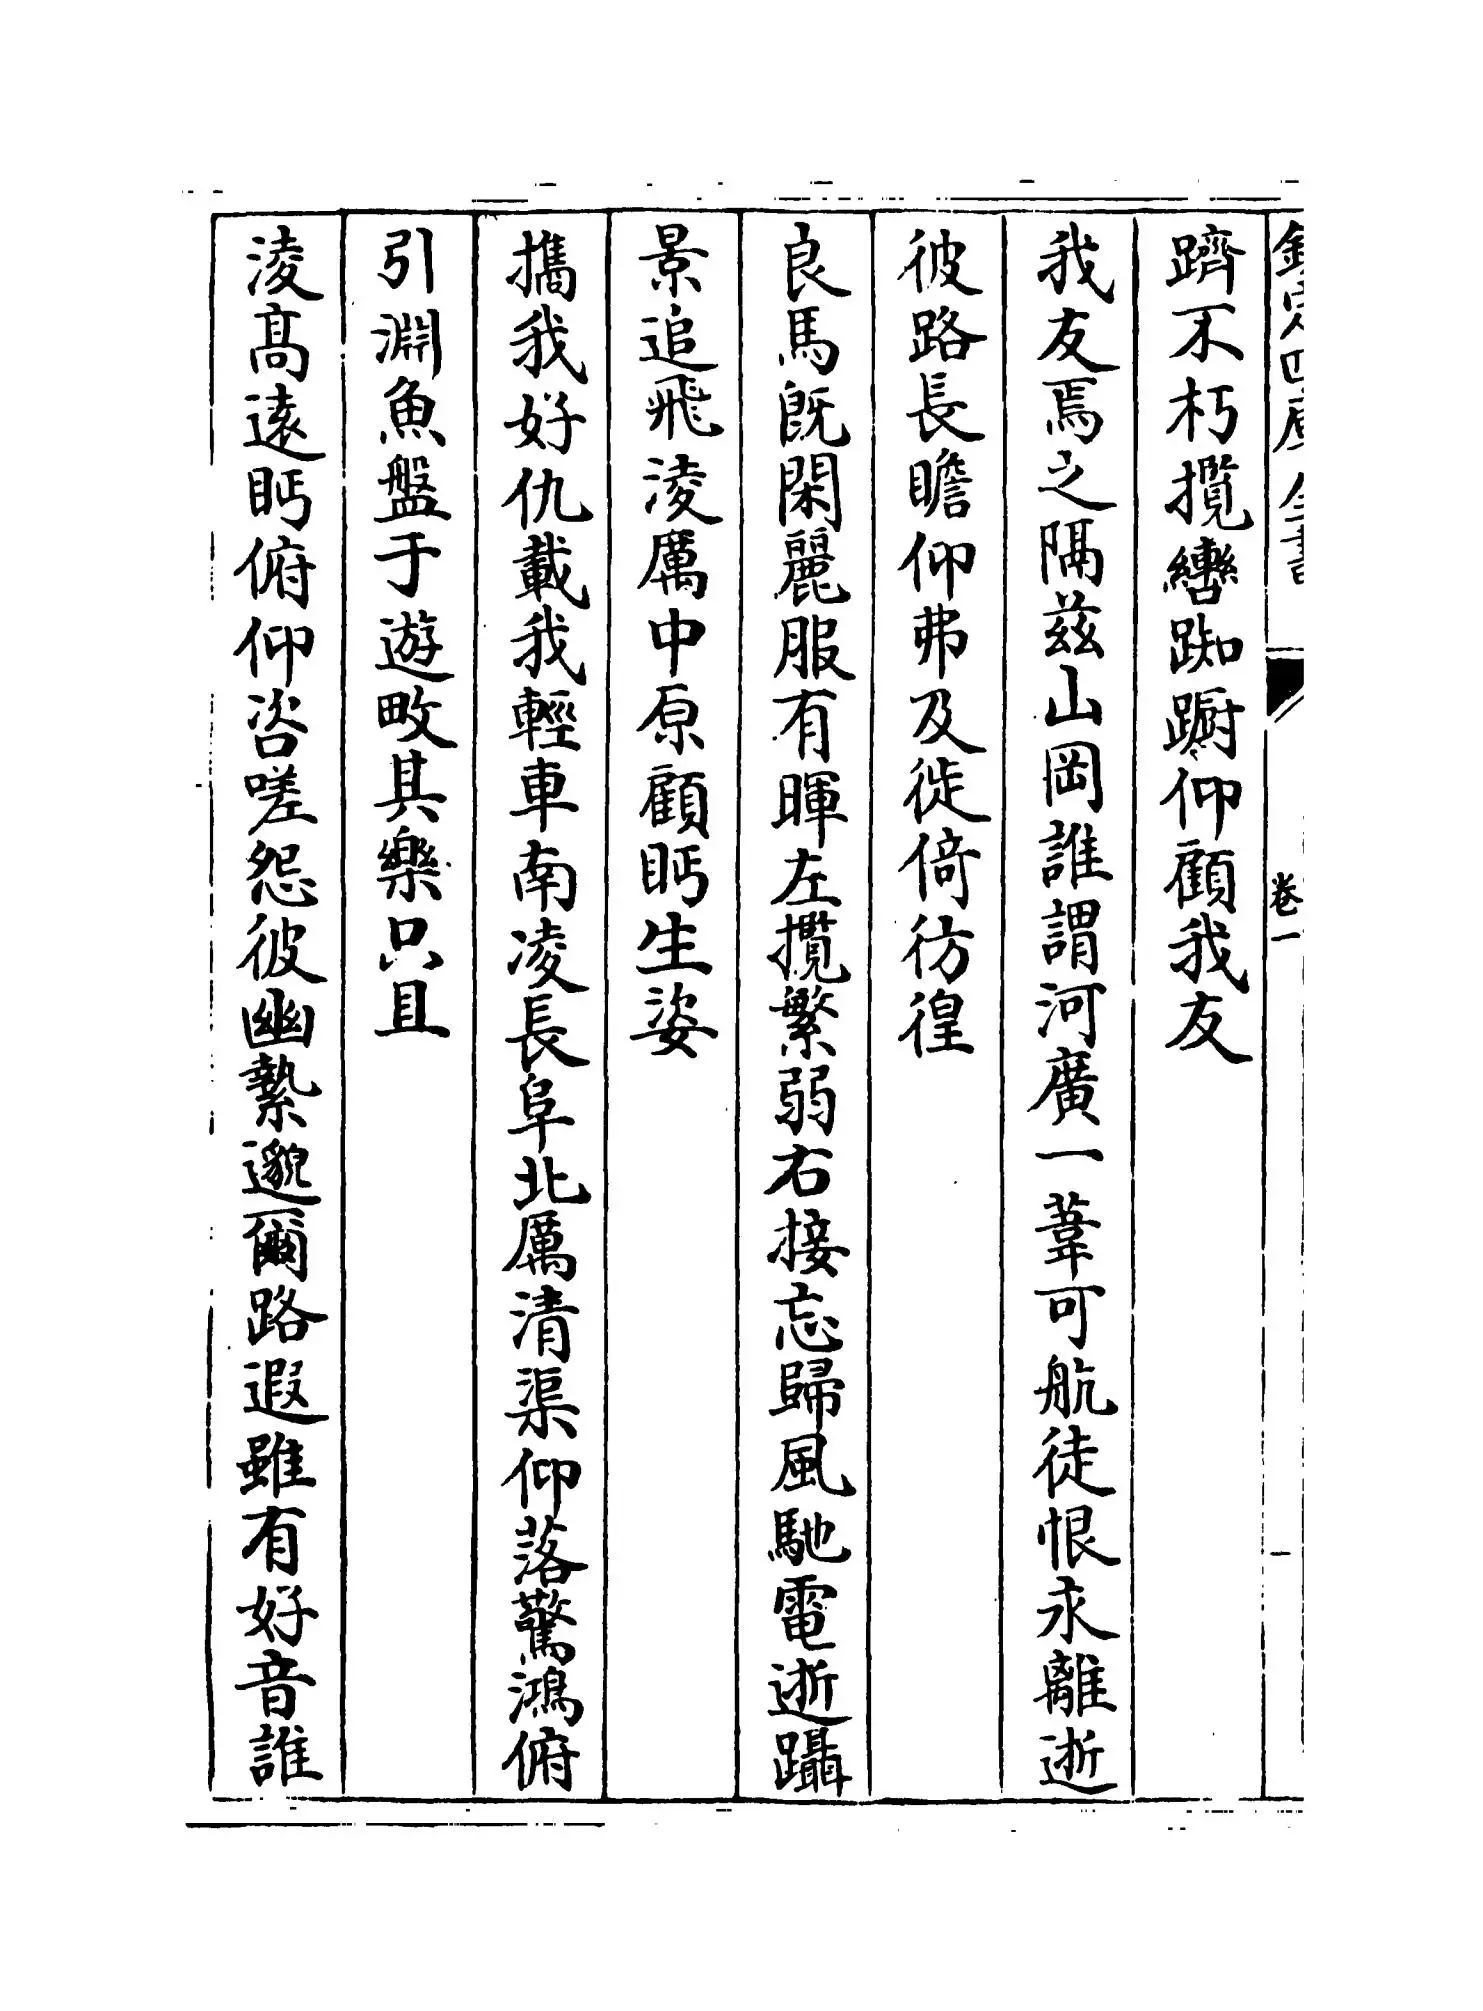 欽定四庫全書 卷一
躋不朽攬轡踟躕仰顧我友
我友焉之隔兹山岡誰謂河廣一葦可航徒恨永離逝
彼路長瞻仰弗及徙倚彷徨
良馬旣閑麗服有暉左攬繁弱右接忘歸風馳電逝躡
景追飛淩厲中原顧眄生姿
攜我好仇載我輕車南凌長阜北厲清渠仰落驚鴻俯
引淵魚盤于遊畋其樂只且
淩髙遠眄俯仰咨嗟怨彼幽縶邈爾路遐雖有好音誰